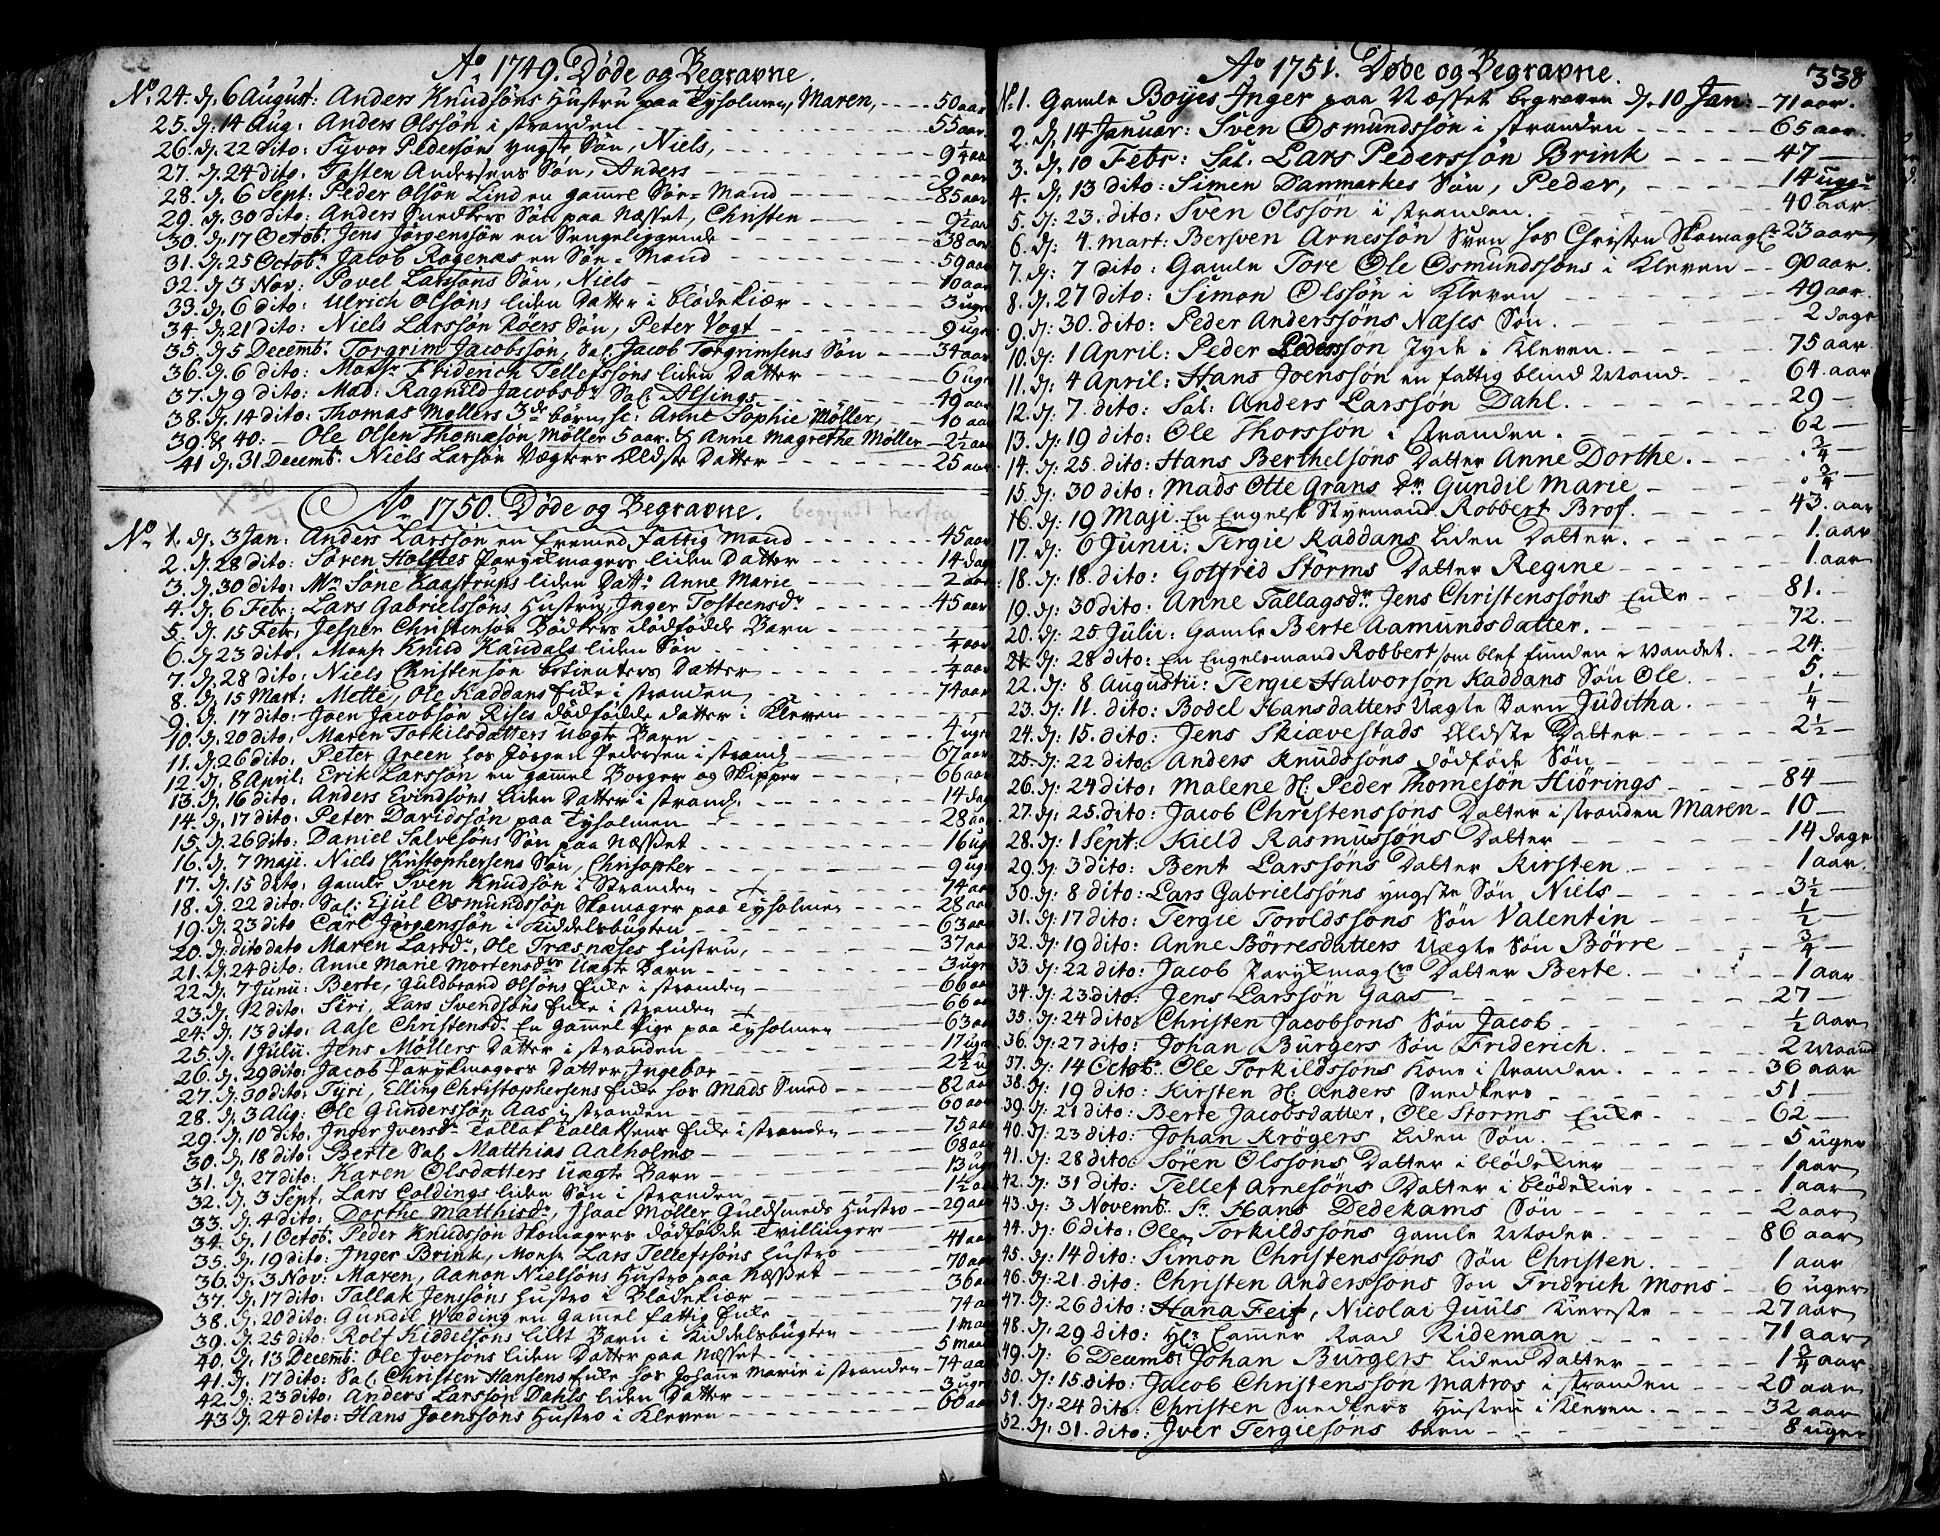 Ao 1749. Døde og Begravne.
No. 24. dj. 6 August: Anders Knudsøns Hustru paa Tyholmen, Maren, 50 aar
25. dj. 14 Aug: Anders Olssøn i stranden 55 aar
26. dj. 22 dito: Tyvor Pedersøns yngste Søn, Niels, 9 1/4 aar
27. dj. 24 dito: Tosten Andersens Søn, Anders 9 aar
28. dj. 6 Sept: Peder Olsøn Lind en gammel Søe-Mand 85 aar
29. dj. 30 dito: Anders Snedkers Søn paa Næsset, Christen 9 1/2 aar
30. dj. 17 Octob: Jens Jørgenssøn en Sengeliggende 38 aar
31. dj. 25 Octobr Jacob Ragenæs en Søe-Mand 59 aar
32. dj. 3 Nov: Povel Larssøns Søn, Niels 10 aar
33. dj. 6 dito: Ulrich Olsøns liden Datter i blødekiær 3 uger
34. dj. 21 dito: Niels Larssøn Røers Søn, Peter Vogt 9 uger
35. dj. 5 Decemb: Torgrim Jacobssøn, Sal: Jacob Torgrimsens Søn 34 aar
36. dj. 6 dito: Monsr Friderich Tellefssøns liden Datter 6 uger
37. dj. 9 dito: Mad: Ragnild Jacobsdr Sal: Alsings 49 aar
38. dj. 14 dito: Thomas Møllers 3de børn, sc: Anne Sophie Møller, 10 aar
39. & 40: Ole Olsen Thomæsøn Møller 5 aar. & Anne Magrethe Møller 2 1/2 aar
41 dj. 31 Decemb: Niels Larsøn Vægters Ældste Datter 25 aar
Ao 1750. Døde og Begravne.
No. 1. dj. 3 Jan: Anders Larssøn en fremmed fattig Mand 45 aar
2. dj. 28 dito: Søren Holstes Parykmagers liden Datter 14 dage
3. dj. 30 dito: Mr Sone Kaastrups liden Datt: Anne Marie 2 aar
4. dj. 6 Febr: Lars Gabrielssøns Hustru, Inger Tosteensdr 45 aar
5. dj. 15 Febr: Jesper Christensøn Bødkers dødfødde Barn
6. dj. 23 dito: Monsr Knud Kaudals liden Søn 1/4 aar
7. dj. 28 dito: Niels Christensøn betienters Datter 1/4 aar
8. dj. 15 Mart: Mette, Ole Kaddans Enke i stranden 74 aar
9. dj. 17 dito: Joen Jacobsøn Rises dødfødde datter i Kleven
10. dj. 20 dito: Maren Torkilsdatters uægte Barn 4 uger
11. dj. 26 dito: Peter Green hos Jørgen Pedersen i strand 67 aar
12. dj. 8 April: Erik Larssøn en gammel Borger og Skipper 66 aar
13. dj. 16 dito: Anders Evindsøns liden Datter i strand. 14 dage
14. dj. 17 dito: Peter Davidssøn paa Tyholmen 28 aar
15. dj. 26 dito: Daniel Salvesøns Søn paa Næsset 16 uger
16. dj. 7 Maji: Niels Christophersens Søn, Christopher 9 uger
17. dj. 15 dito: Gamle Sven Knudsøn i Stranden 74 aar
18. dj. 22 dito: Sal: Ejul Osmundssøn Skomager paa Tyholmen 28 aar
19. dj. 23 dito Carl Jørgenssøn i Kiddelsbugten 63 aar
20. dj. dito dato Maren Larsdr, Ole Træsnæses Hustru, 37 aar
21. dj. 24 dito: Anne Marie Mortensdrs Uægte Barn 3 uger
22. dj. 7 Junii: Berte, Guldbrand Olsøns Enke i stranden 66 aar
23. dj. 12 dito: Siri, Lars Svendsøns Enke i stranden 66 aar
24. dj. 13 dito: Aase Christensdr En gammel Pige paa Tyholmen 63 aar
25. dj. 1 Julii: Jens Møllers Datter i stranden 17 uger
26. dj. 29 dito: Jacob Parykmagers Datter Ingebor 2 1/2 uger
27. dj. 30 dito: Tyri, Elling Christophersens Enke hos Mads Smed 82 aar
28. dj. 3 Aug: Ole Gunderssøn Aas i stranden 60 aar
29. dj. 10 dito: Inger Iversdr Tallak Tallaksens Enke i stranden 75 aar
30. dj. 18 dito: Berte Sal: Matthias Aalholms 68 aar
31. dj. 27 dito: Karen Olsdatters uægte Barn 13 uger
32. dj. 3 Sept: Lars Coldings liden Søn i stranden 1 1/2 aar
33. dj. 4 dito: Dorthe Matthisdr, Isaac Møller Guldsmeds Hustro 29 aar
34. dj. 1 Octob: Peder Knudssøn Skomagers dødfødde Tvillinger
35. dj. 19 dito: Inger Brink, Monsr Lars Tellefssøns Hustro 41 aar
36. dj. 3 Nov: Maren, Aanon Nielsøns Hustro paa Næsset 70 aar
37. dj. 17 dito: Tallak Jenssøns Hustro i Blødekiær 36 aar
38. dj. 20 dito: Gundil Wæding en gammel fattig Enke 74 aar
39. dj. 25 dito: Rolf Kiddelsøns lidt Barn i Kiddelsbugten 1 maan
40. dj. 13 Decemb: Ole Iversøns liden Datter paa Næsset 5 maan
41. dj. 17 dito: Sal: Christen Hansens Enke hos Johane Marie i stranden 74 aar
42. dj. 23 dito: Anders Larssøn Dahls liden Datter 3 uger
43. dj. 24 dito: Hans Joenssøns Hustro i Kleven 60 aar
338
Ao 1751. Døde og Begravne.
No. 1. Gamle Boyes Inger paa Næsset begraven dj. 10 Jan: 71 aar.
2. dj. 14 Januar: Sven Osmundssøn i stranden 65 aar.
3. dj. 10 Febr: Sal: Lars Pederssøn Brink 47
4. dj. 13 dito: Simen Danmarkes Søn, Peder, 14 uger
5. dj. 23. dito: Sven Olssøn i stranden. 40 aar.
6. dj. 4. mart: Bersven Arnessøn Sven hos Christen Skomager 23 aar
7. dj. 7 dito: Gamle Tore Ole Osmundssøns i Kleven 90 aar.
8. dj. 27 dito: Simon Olssøn i Kleven 49 aar.
9. dj. 30. dito: Peder Anderssøns Næses Søn. 2 dage
10. dj. 1 April: Peder Pederssøn Jyde i Kleven. 75 aar
11. dj. 4 April: Hans Joenssøn en fattig blind Mand 64 aar
12. dj. 7. dito: Sal: Anders Larssøn Dahl. 29
13. dj. 19 dito: Ole Thorssøn i stranden. 62
14. dj. 25. dito: Hans Berthelsøns Datter Anne Dorthe. 3/4
15. dj. 30 dito: Mads Otte Grans dr Gundil Marie 3/4
16. dj. 19 Maji En Engelsk Styrmand Robbert Brof. 43. aar
17. dj. 6 Junii: Tergie Kaddans Liden Datter. 1. aar
18. dj. 18. dito: Gotfrid Storms Datter Regine 1 aar
19. dj. 30 dito: Anne Tallagsdr Jens Christenssøns Enke 81.
20. dj. 25 Julii: Gamle Berte Aamundsdatter. 72.
21. dj. 28 dito: En Engelsmand Robbert som blef funden i Vandet. 24.
22. dj. 8 Augustii: Tergie Halvorsøn Kaddans Søn Ole. 5.
23. dj. 11. dito: Bodel Hansdatters Uægte Barn Juditha. 1/4
24. dj. 15. dito: Jens Skiævestads Ældste Datter 2 1/2
25. dj. 22 dito: Anders Knudssøns dødføde Søn
26. dj. 24 dito: Malene Sl. Peder Thomesøn Hiørings 84
27. dj. 25. dito: Jacob Christenssøns Datter i stranden Maren 10
28. dj. 1 Sept: Kield Rasmussøns Datter 14 dage
29. dj. 3 dito: Bent Larssøns Datter Kirsten 1 aar.
30. dj. 8 dito: Lars Gabrielssøns yngste Søn Niels 3 1/2
31. dj. 17 dito: Tergie Toroldssøns Søn Valentin 1/2
32. dj. 19 dito: Anne Børresdatters Uægte Søn Børre 3/4
33. dj. 22 dito: Jacob Parykmagers Datter Berte. 1 aar
34. dj. 23 dito: Jens Larssøn Gaas 27
35. dj. 24 dito: Christen Jacobsøns Søn Jacob 1/2 aar
36. dj. 27 dito: Johan Burgers Søn Friderich. 2 Maand
37. dj. 14 Octob: Ole Torkildssøns Kone i stranden. 36 aar
38. dj. 19 dito: Kirsten Sl. Anders Snedkers 51
39. dj. 21 dito: Berte Jacobsdatter, Ole Storms Enke 62
40. dj. 23 dito: Johan Krögers Liden Søn. 5 uger
41. dj. 28 dito: Søren Olssøns Datter i blødekier 1 aar
42. dj. 31 dito: Tellef Arnesøns Datter i blødekier 1 aar
43. dj. 3 Novemb: Sr Hans Dedekams Søn 2 aar
44. dj. 6 dito: Ole Torkildssøns Gamle Moder. 86 aar
45. dj. 14 dito: Simon Christenssøns Søn Christen. 1 aar
46. dj. 21. dito: Christen Anderssøns Søn Fridrich Mons 6 uger
47. dj. 26 dito: Hana Feif, Nicolai Juuls Kiereste 27 aar
48. dj. 29 dito: Hr Cammer Raad Rideman 71 aar
49. dj. 6 Decemb: Johan Burgers Liden Datter 1 3/4 aar
50. dj. 15 dito: Jacob Christenssøn Matros i stranden 20 aar
51. dj. 24 dito: Christen Snedkers Hustru i Kleven. 32 aar
52. dj. 31. dito: Iver Tergiesøns barn 8 uger